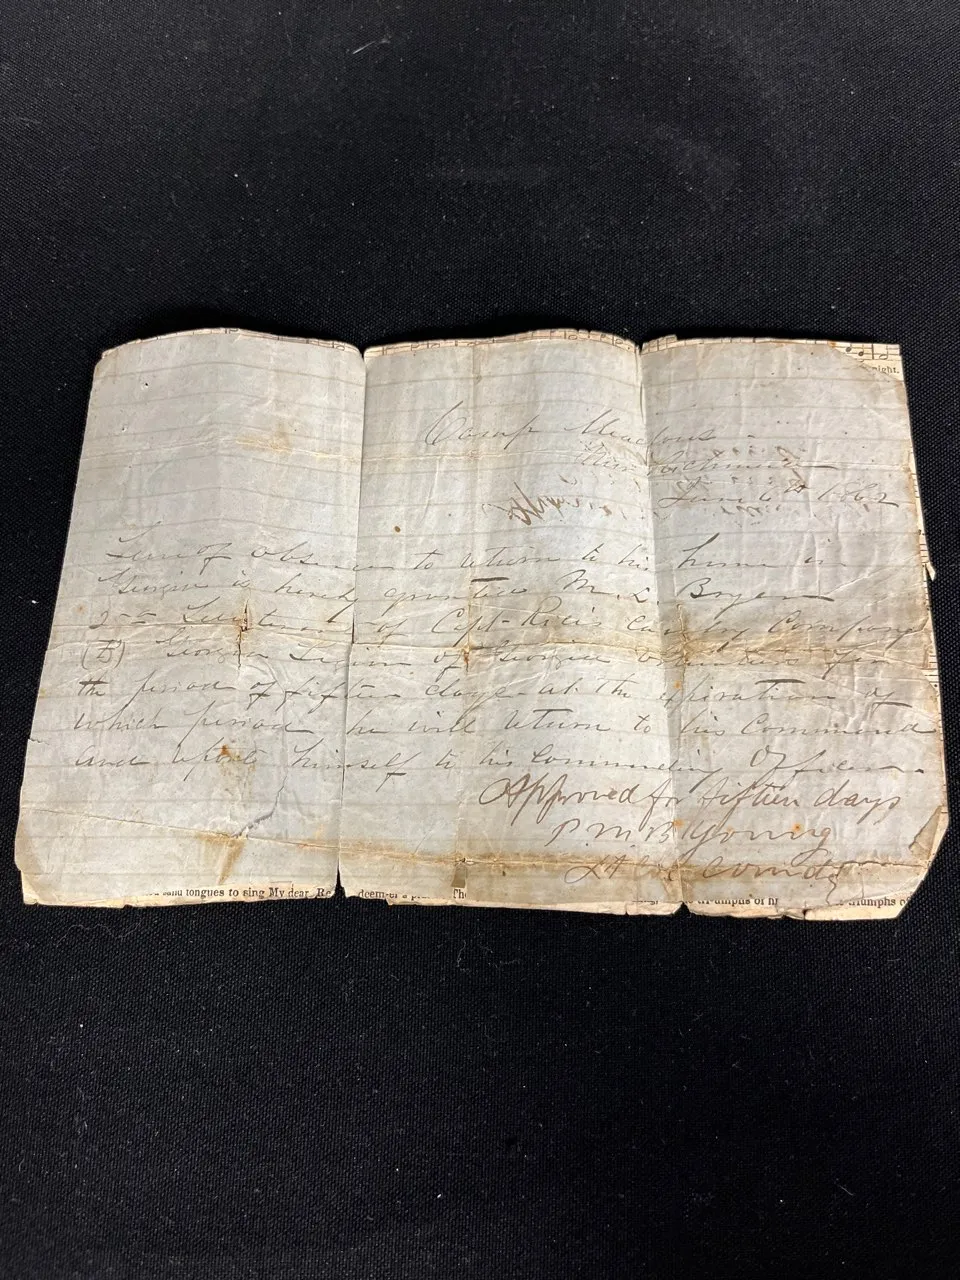 night.
Camp Meadows
Near Richmond
June 6th 1862
Leave of absence to return to his home in
Georgia is hereby granted M. L. Bryan
2nd Lieutenant of Capt. Rice's cavalry Company
(B) Georgia Legion of Georgia volunteers for
the period of fifteen days at the expiration of
which period he will return to his Command
and report himself to his Commanding Officer.
Approved for fifteen days
P M B Young
Lt Col Comdg
and tongues to sing My dear Re deem-er's The triumphs of h triumphs of